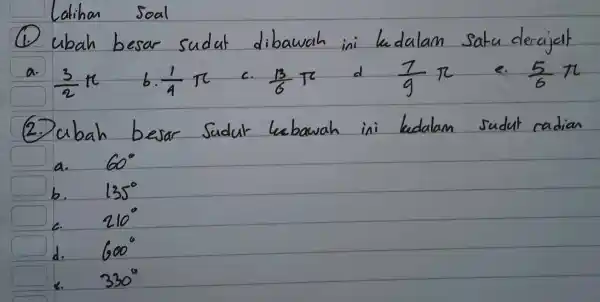 Latihan Soal
① ubah besar sudut dibawah ini kedalam satu derajat
a. 3/2 π b. 1/4 π c. 13/6 π d 7/9 π e. 5/6 π
②. ubah besar sudut kebawah ini kedalam sudut radian
a. 60°
b. 135°
c. 210°
d. 600°
e. 330°